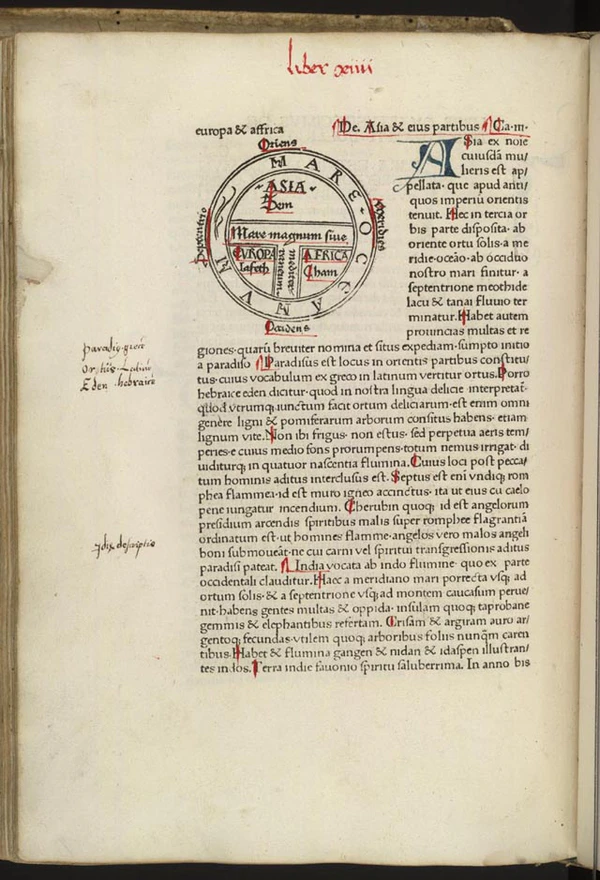 liber xiiii
europa & affrica De. Asia & eius partibus Ca·iii·
Oriens
MARE OCEANUM
Septentrio
Meridies
ASIA
Sem
Mare magnum siue
mediterraneum
EVROPA
Iafeth
AFRICA
Cham
Occidens
ASia ex noīe
cuiusdā mu/
lieris est ap/
pellata· que apud anti/
quos imperiū orientis
tenuit. Hec in tercia or
bis parte disposita· ab
oriente ortu solis· a me
ridie·oceāo·ab occiduo
nostro mari finitur· a
septentrione meothide
lacu & tanai fluuio ter
minatur. Habet autem
prouincias multas et re
giones·quarū breuiter nomina et situs expediam·sumpto initio
a paradiso Paradisus est locus in orientis partibus constitu/
tus·cuius vocabulum ex greco in latinum vertitur ortus.Porro
hebraice eden dicitur·quod in nostra lingua delicie interpretat̄·
quod vtrumq; iunctum facit ortum deliciarum·est enim omni
genere ligni & pomiferarum arborum consitus habens· etiam
lignum vite.Non ibi frigus· non estus· sed perpetua aeris tem/
peries·e cuius medio fons prorumpens·totum nemus irrigat· di
uiditurq; in quatuor nascentia flumina.Cuius loci post pecca/
tum hominis aditus interclusus est. Septus est enī vndiq; rom
phea flammea·id est muro igneo accinctus· ita ut eius cu caelo
pene iungatur incendium. Cherubin quoq; id est angelorum
presidium arcendis spiritibus malis super romphee flagrantiā
ordinatum est·ut homines flamme·angelos vero malos angeli
boni submoueāt·ne cui carni vel spiritui transgressionis aditus
paradisi pateat. India vocata ab indo flumine· quo ex parte
occidentali clauditur.Haec a meridiano mari porrecta vsq; ad
ortum solis·& a septentrione vsq;ad montem caucasum perue/
nit·habens gentes multas & oppida· insulam quoq; taprobane
gemmis & elephantibus refertam. Crisam & argiram auro ar/
gentoq; fecundas·vtilem quoq; arboribus foliis nunq̄m caren
tibus·Habet & flumina gangen & nidan & idaspen illustran/
tes indos.Terra indie fauonio spiritu saluberrima. In anno bis
Eden hebraice